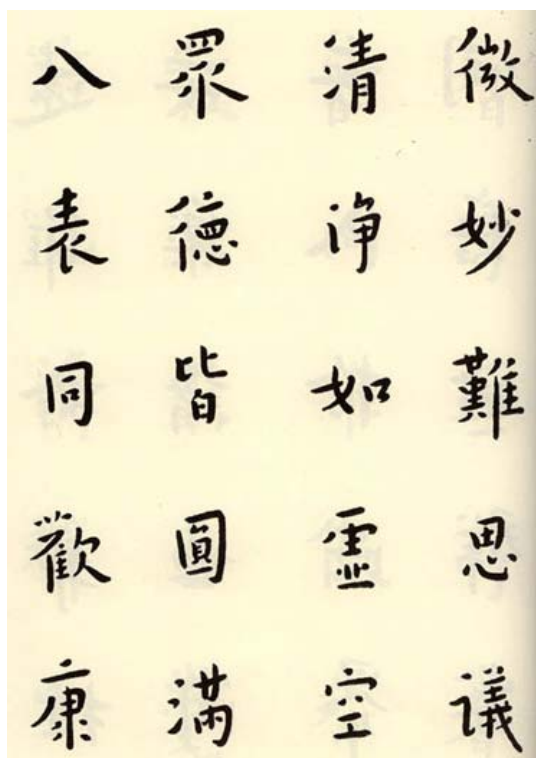 微妙難思議
清淨如虛空
眾德皆圓滿
八表同歡康